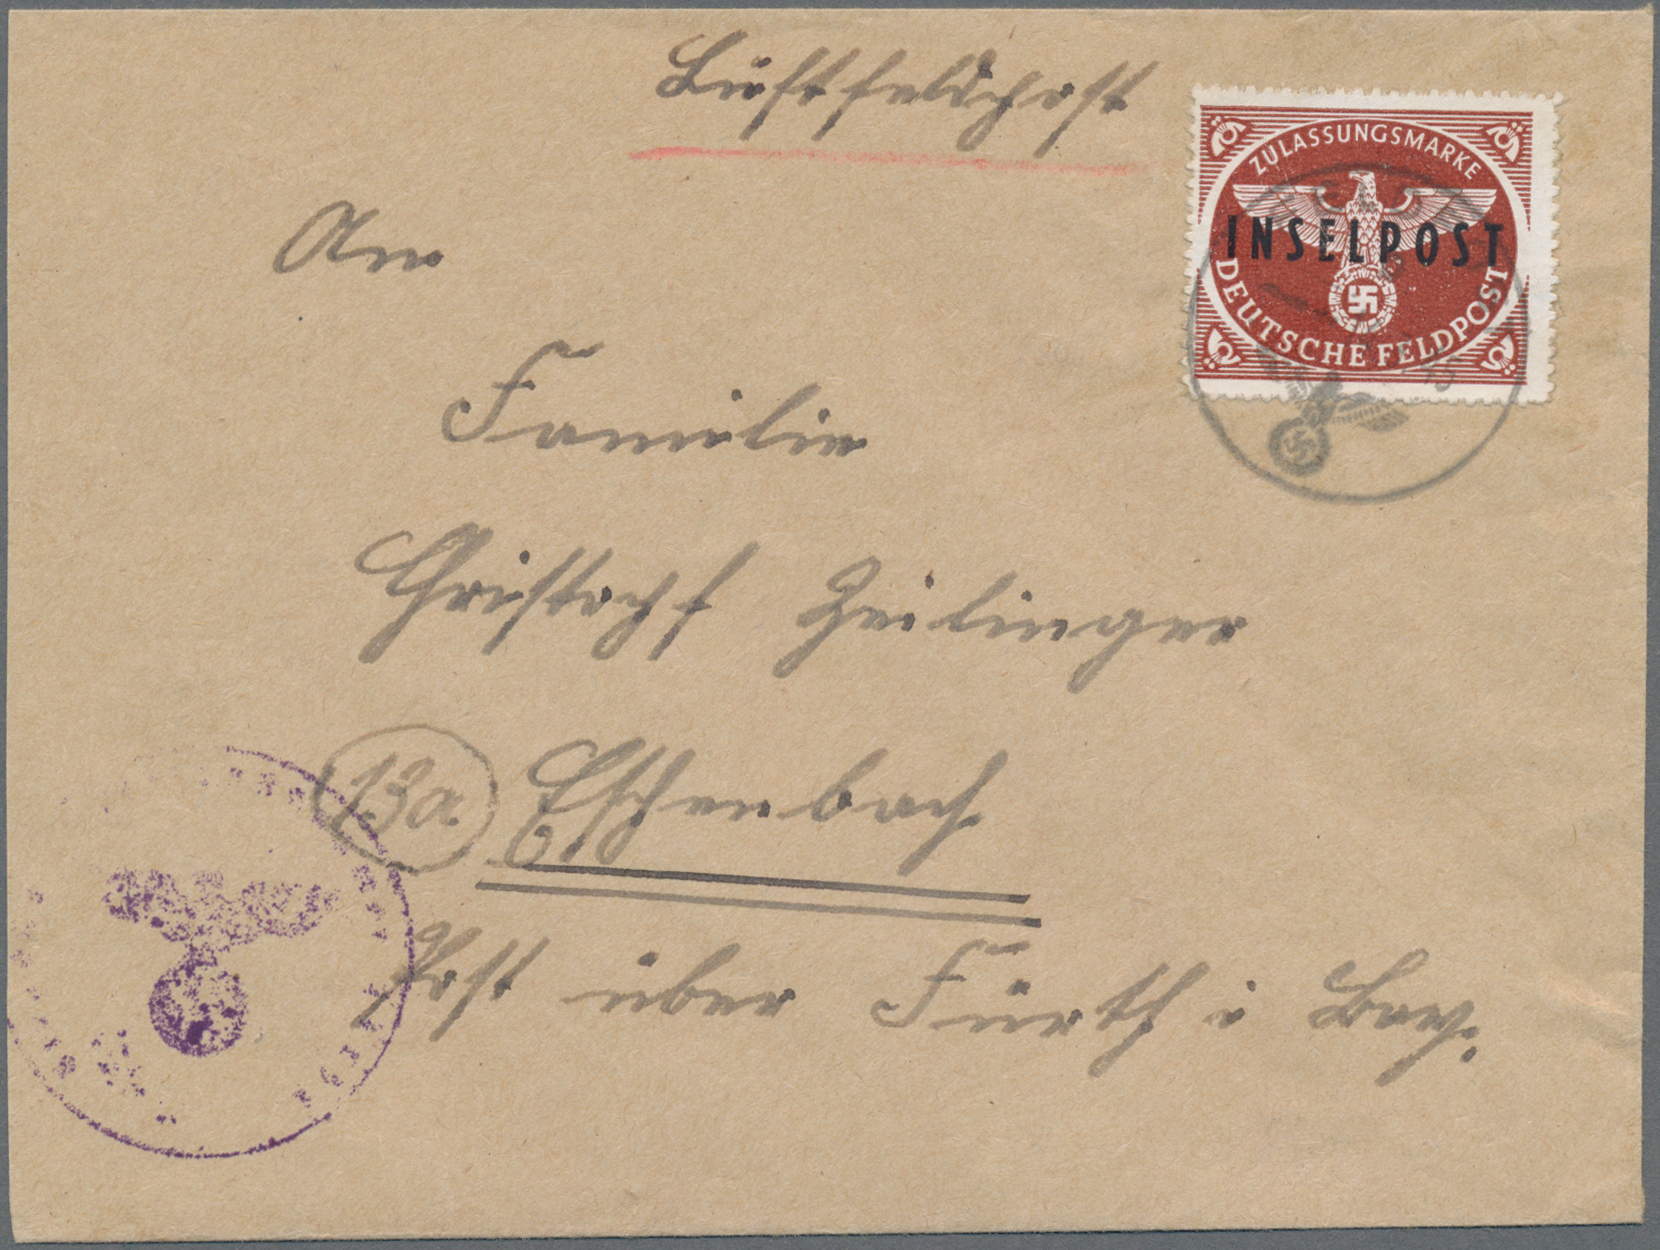 Luftfeldpost
ZULASSUNGSMARKE
INSELPOST
DEUTSCHE FELDPOST
An
Familie
Christopf Zeilinger
13a Eschenbach
Post über Fürth i Bay.